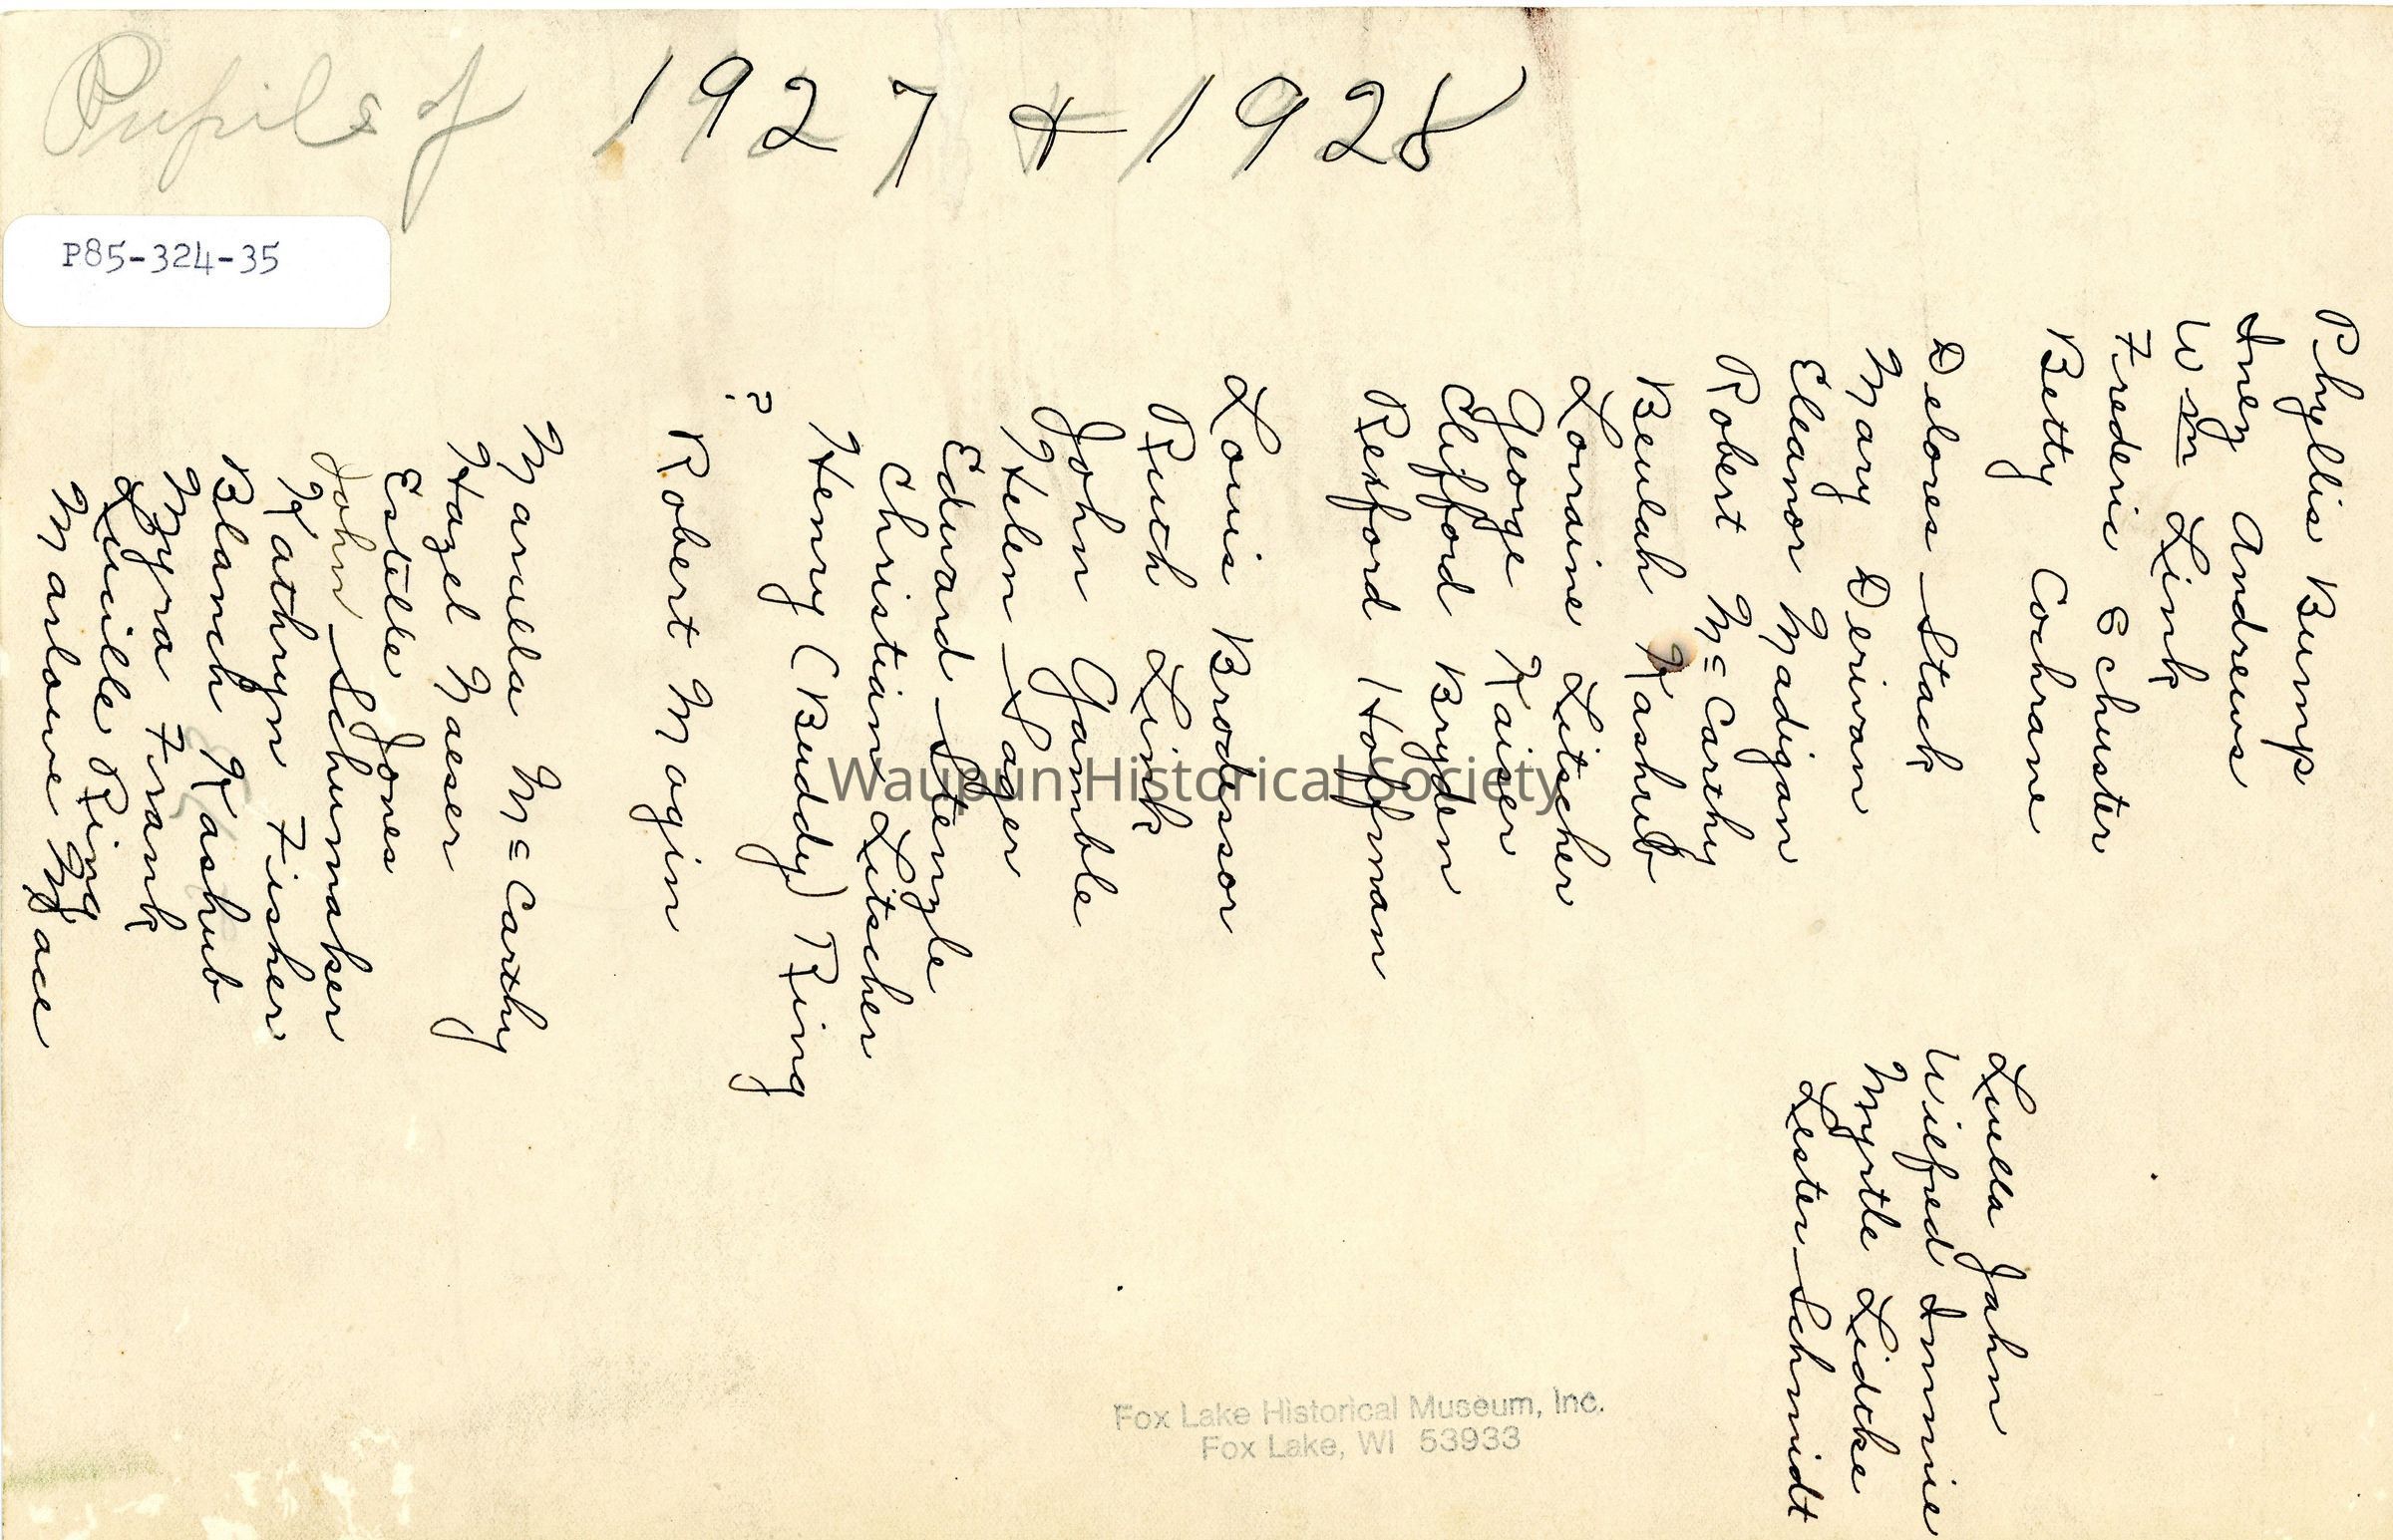 Pupils of 1927 + 1928
P85-324-35
Phyllis Bump
Inez Andrews
Wm Link
Frederic Schuster
Betty Cochrane
Delores Stack
Mary Derivan
Eleanor Madigan
Robert Mc Carthy
Beulah Kashub
Loraine Litscher
George Kaiser
Clifford Bryden
Rexford Hoffman
Louis Brodessor
Ruth Link
John Gamble
Helen Sager
Edward Stenzle
Christian Litscher
Henry (Buddy) Ring
?
Robert Magin
Marella Mc Carthy
Hazel Naeser
Estelle Jones
John Schumaker
Kathryn Fisher
Blanch Kashub
Myra Frank
Lucille Ring
Marlowe Mace
Luella Jahn
Wilfred Immie
Myrtle Lidtke
Lester Schmidt
Waupun Historical Society
Fox Lake Historical Museum, Inc.
Fox Lake, WI 53933